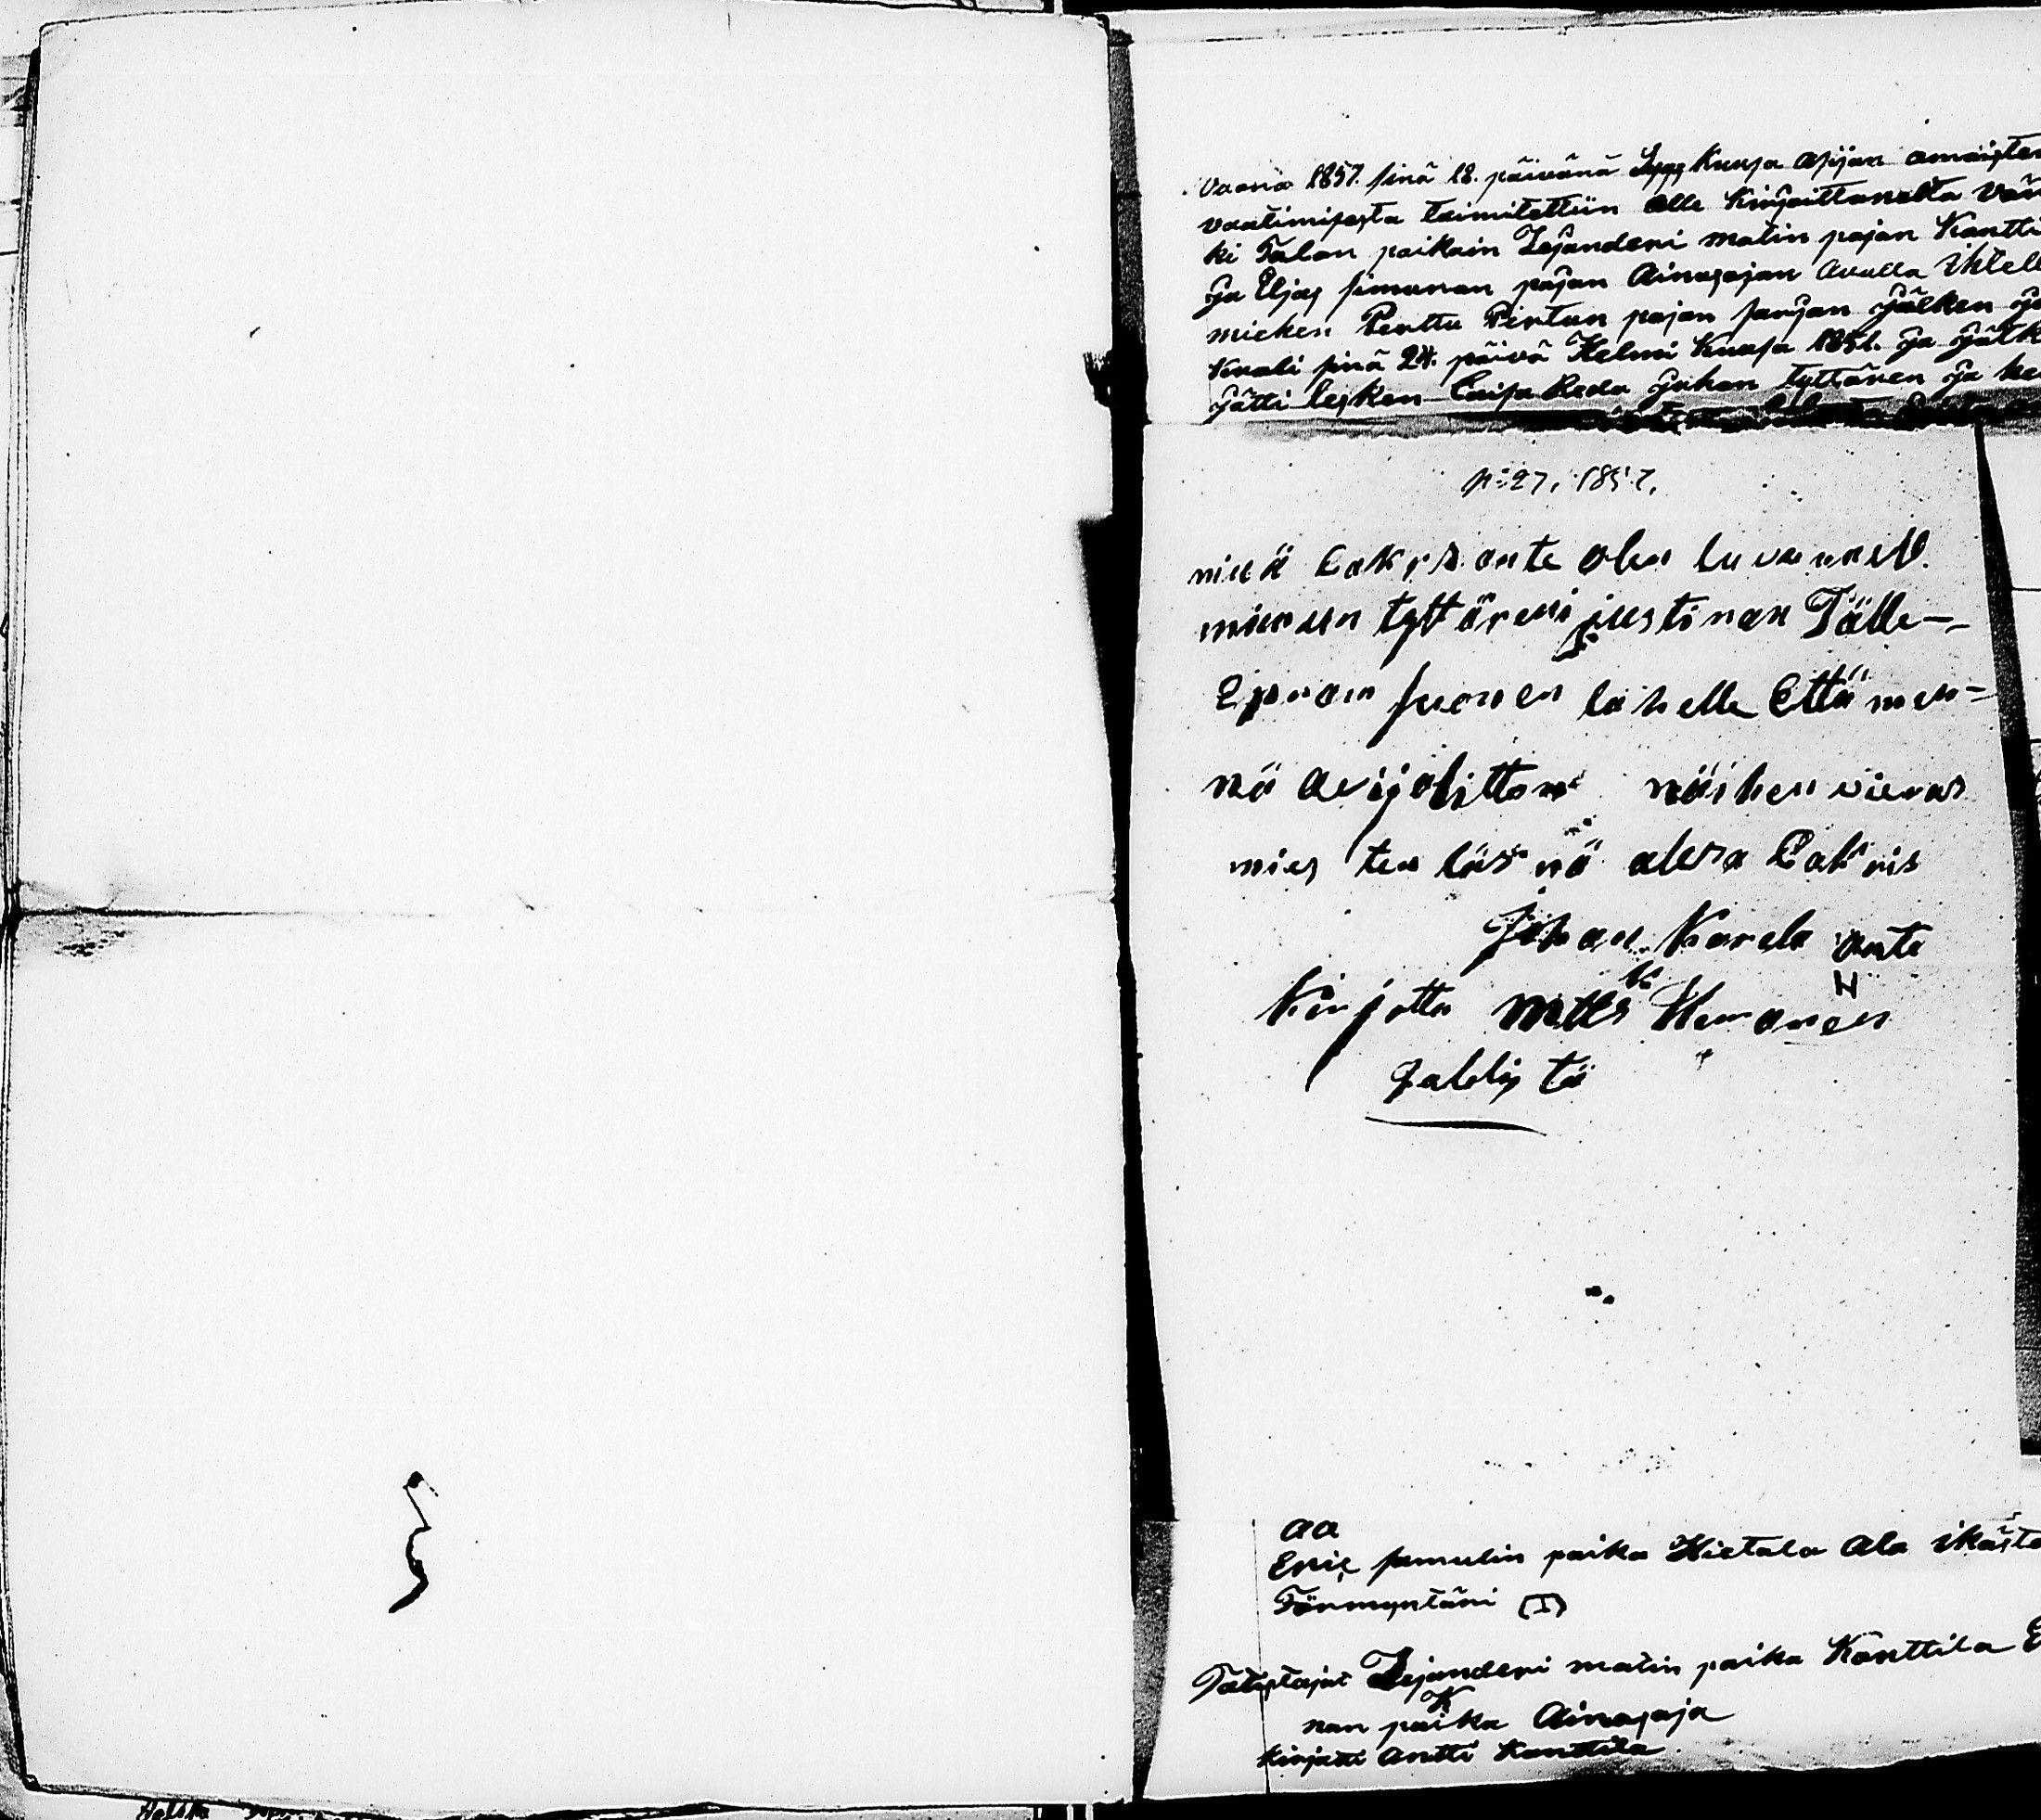 Vuona 1857. sinä 18. päivänä Syys Kuusa asijan omaisten
vaatimisesta toimitettiin alle kirjoittanelta Vän
ki Talan paikain Zejanderi matin pojan Kantti
ja Eljas simunan pojan Ainasojan avulla ihtell
miehen Perttu Pertun pojan sarjan jälken ja
kuali sinä 24. päivä Helmi kuusa 1851. ja jätk
jätti lesken Caisa Reda juhan tyttären ja ke
N:27. 1857.
minä Cakris ante olen luvannu
minun tyttäreni justinan Tälle-
Epram suonen lahelle Että men=
nä avijolitton näiken vieras
mies ten läsnä olesa Cakris
Johan Karela ante
Kirjotta Mats Heranen
N
Jalelis tä
aa
Eric samulin poika Hietala Ala ikäste
Förmyntäri (I)
Totistajat Zejanderi matin poika Kanttila E
nan poika Ainasoja
kirjatti Antti Kanttila